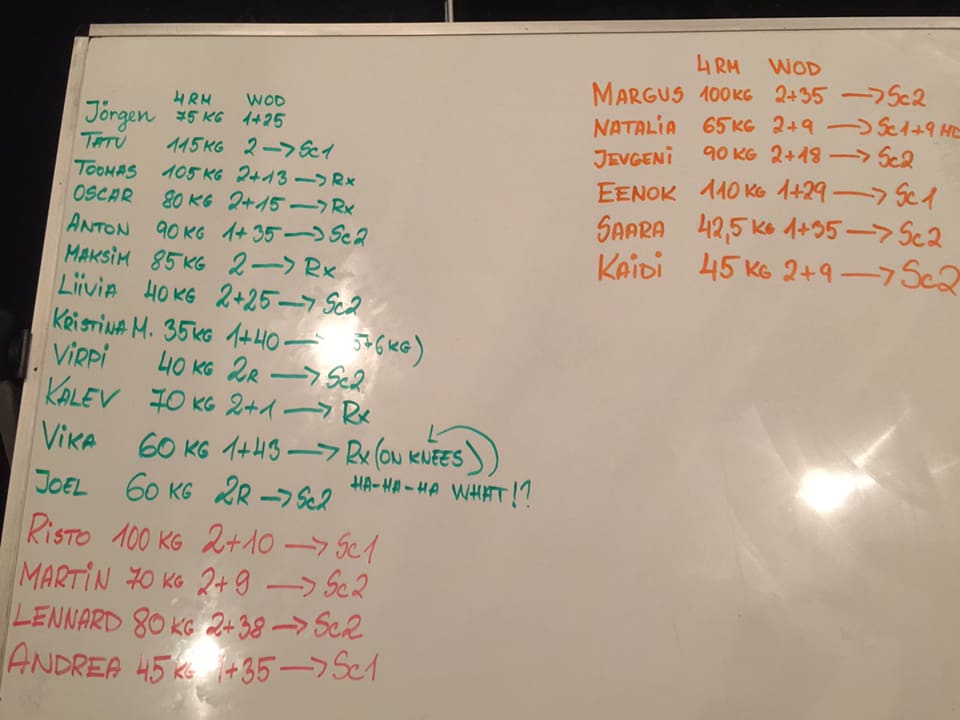 4RM WOD
Jörgen 75 KG 1+25
TATU 115KG 2 → Sc1
TOOMAS 105 KG 2+13 → Rx
OSCAR 80 KG 2+15 → Rx
ANTON 90 KG 1+35 → Sc2
MAKSIM 85 KG 2 → Rx
LiiviA 40 KG 2+25 → Sc2
KRISTINA M. 35KG 1+40 → 5+6 KG)
ViRPi 40 KG 2R → Sc2
KALEV 70 KG 2+1 → Rx
ViKA 60 KG 1+43 → Rx (ON KNEES)
HA-HA-HA WHAT!?
JOEL 60 KG 2R → Sc2
RiSTO 100 KG 2+10 → Sc1
MARTiN 70 KG 2+9 → Sc2
LENNARD 80 KG 2+38 → Sc2
ANDREA 45 KG 1+35 → Sc1
4RM WOD
MARGUS 100KG 2+35 → Sc2
NATALIA 65 KG 2+9 → Sc1+9
JEVGENI 90 KG 2+18 → Sc2
EENOK 110 KG 1+29 → Sc1
SAARA 42,5 KG 1+35 → Sc2
KAIDI 45 KG 2+9 → Sc2